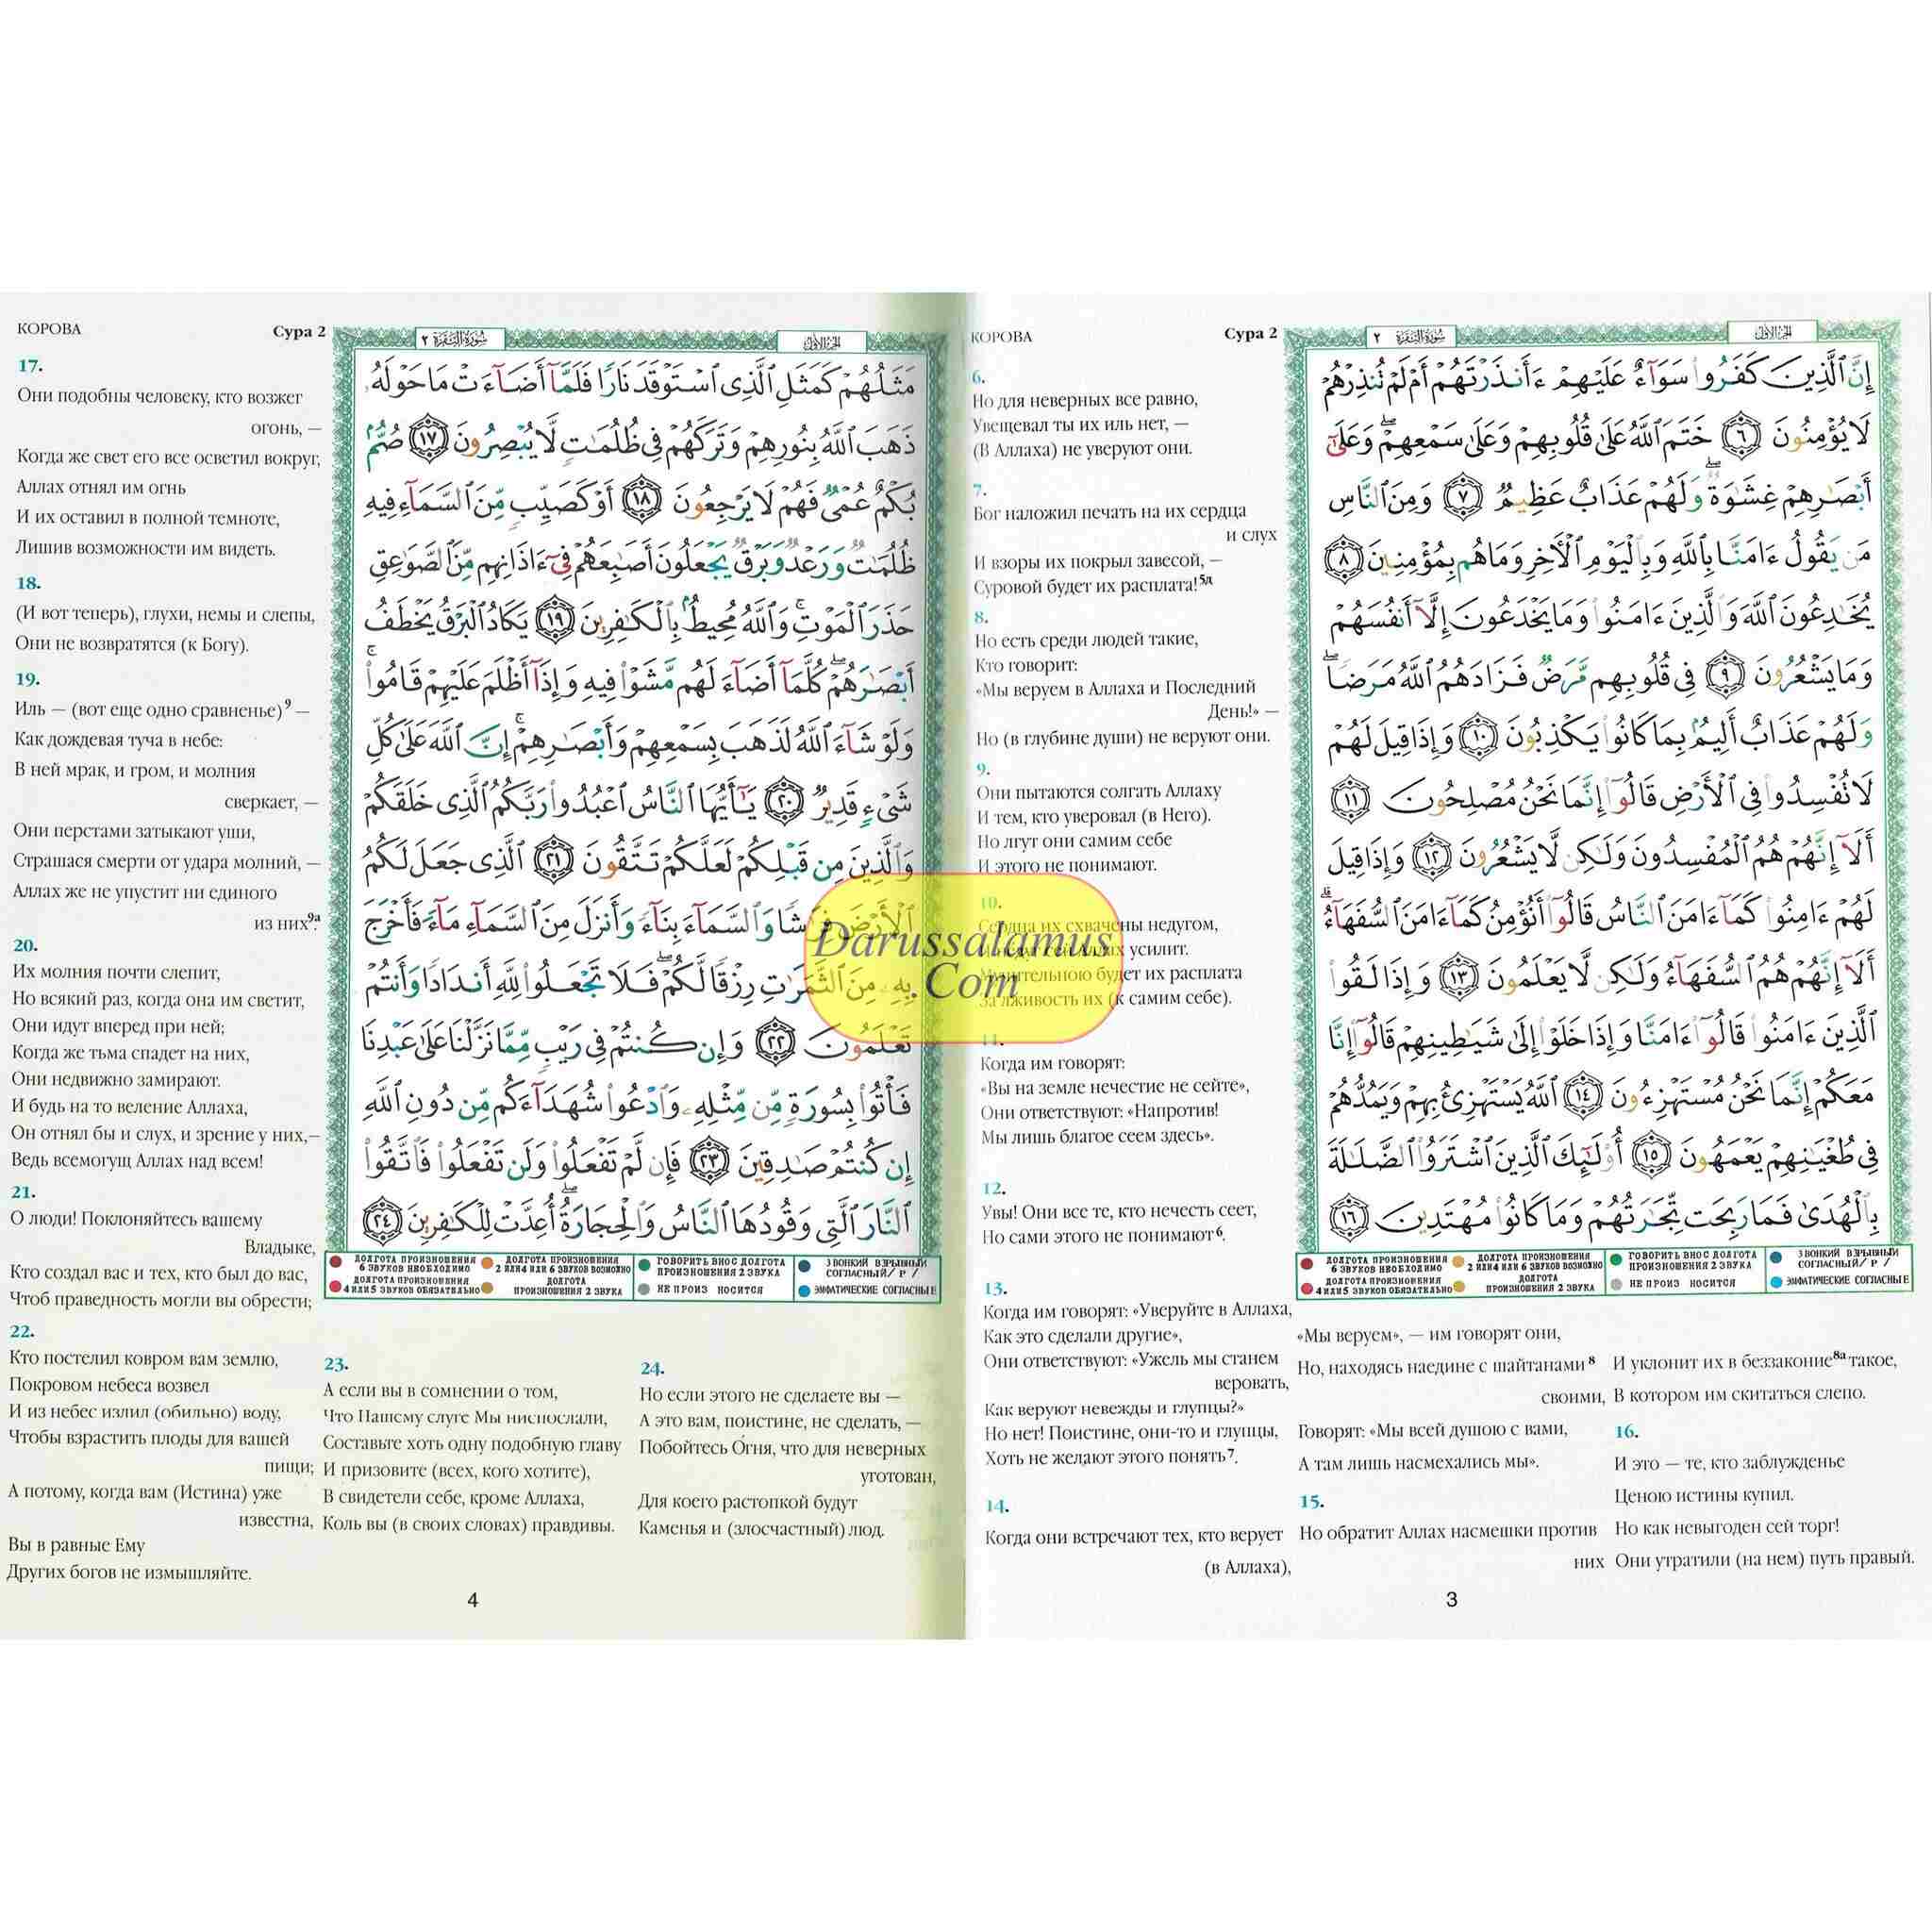 КОРОВА
Сура 2
سُورَةُ البَقَرَةِ ٢
الجزء الأول
6.
Но для неверных все равно,
Увещевал ты их иль нет, —
(В Аллаха) не уверуют они.
7.
Бог наложил печать на их сердца
и слух
И взоры их покрыл завесой, —
Суровой будет их расплата!5д
8.
Но есть среди людей такие,
Кто говорит:
«Мы веруем в Аллаха и Последний
День!» —
Но (в глубине души) не веруют они.
9.
Они пытаются солгать Аллаху
И тем, кто уверовал (в Него).
Но лгут они самим себе
И этого не понимают.
10.
Сердца их схвачены недугом,
усилит.
будет их расплата
За лживость их (к самим себе).
11.
Когда им говорят:
«Вы на земле нечестие не сейте»,
Они ответствуют: «Напротив!
Мы лишь благое сеем здесь».
12.
Увы! Они все те, кто нечесть сеет,
Но сами этого не понимают6.
13.
Когда им говорят: «Уверуйте в Аллаха,
Как это сделали другие»,
Они ответствуют: «Ужель мы станем
веровать,
Как веруют невежды и глупцы?»
Но нет! Поистине, они-то и глупцы,
Хоть не желают этого понять7.
14.
Когда они встречают тех, кто верует
(в Аллаха),
«Мы веруем», — им говорят они,
Но, находясь наедине с шайтанами8
своими,
Говорят: «Мы всей душою с вами,
А там лишь насмехались мы».
15.
Но обратит Аллах насмешки против
них
И уклонит их в беззаконие8а такое,
В котором им скитаться слепо.
16.
И это — те, кто заблужденье
Ценою истины купил.
Но как невыгоден сей торг!
Они утратили (на нем) путь правый.
إِنَّ ٱلَّذِينَ كَفَرُوا۟ سَوَآءٌ عَلَيْهِمْ ءَأَنذَرْتَهُمْ أَمْ لَمْ تُنذِرْهُمْ
لَا يُؤْمِنُونَ ٦ خَتَمَ ٱللَّهُ عَلَىٰ قُلُوبِهِمْ وَعَلَىٰ سَمْعِهِمْ ۖ وَعَلَىٰٓ
أَبْصَٰرِهِمْ غِشَٰوَةٌ ۖ وَلَهُمْ عَذَابٌ عَظِيمٌ ٧ وَمِنَ ٱلنَّاسِ
مَن يَقُولُ ءَامَنَّا بِٱللَّهِ وَبِٱلْيَوْمِ ٱلْأَخِرِ وَمَا هُم بِمُؤْمِنِينَ ٨
يُخَٰدِعُونَ ٱللَّهَ وَٱلَّذِينَ ءَامَنُوا۟ وَمَا يَخْدَعُونَ إِلَّآ أَنفُسَهُمْ
وَمَا يَشْعُرُونَ ٩ فِى قُلُوبِهِم مَّرَضٌ فَزَادَهُمُ ٱللَّهُ مَرَضًا ۖ
وَلَهُمْ عَذَابٌ أَلِيمٌۢ بِمَا كَانُوا۟ يَكْذِبُونَ ١٠ وَإِذَا قِيلَ لَهُمْ
لَا تُفْسِدُوا۟ فِى ٱلْأَرْضِ قَالُوٓا۟ إِنَّمَا نَحْنُ مُصْلِحُونَ ١١
أَلَآ إِنَّهُمْ هُمُ ٱلْمُفْسِدُونَ وَلَٰكِن لَّا يَشْعُرُونَ ١٢ وَإِذَا قِيلَ
لَهُمْ ءَامِنُوا۟ كَمَآ ءَامَنَ ٱلنَّاسُ قَالُوٓا۟ أَنُؤْمِنُ كَمَآ ءَامَنَ ٱلسُّفَهَآءُ ۗ
أَلَآ إِنَّهُمْ هُمُ ٱلسُّفَهَآءُ وَلَٰكِن لَّا يَعْلَمُونَ ١٣ وَإِذَا لَقُوا۟
ٱلَّذِينَ ءَامَنُوا۟ قَالُوٓا۟ ءَامَنَّا وَإِذَا خَلَوْا۟ إِلَىٰ شَيَٰطِينِهِمْ قَالُوٓا۟ إِنَّا
مَعَكُمْ إِنَّمَا نَحْنُ مُسْتَهْزِءُونَ ١٤ ٱللَّهُ يَسْتَهْزِئُ بِهِمْ وَيَمُدُّهُمْ
فِى طُغْيَٰنِهِمْ يَعْمَهُونَ ١٥ أُو۟لَٰٓئِكَ ٱلَّذِينَ ٱشْتَرَوُا۟ ٱلضَّلَٰلَةَ
بِٱلْهُدَىٰ فَمَا رَبِحَت تِّجَٰرَتُهُمْ وَمَا كَانُوا۟ مُهْتَدِينَ ١٦
ДОЛГОТА ПРОИЗНОШЕНИЯ 6 ЗВУКОВ НЕОБХОДИМО
ДОЛГОТА ПРОИЗНОШЕНИЯ 2 ИЛИ 4 ИЛИ 6 ЗВУКОВ ВОЗМОЖНО
ГОВОРИТЬ В НОС ДОЛГОТА ПРОИЗНОШЕНИЯ 2 ЗВУКА
ЗВОНКИЙ ВЗРЫВНЫЙ СОГЛАСНЫЙ/ Р /
ДОЛГОТА ПРОИЗНОШЕНИЯ 4 ИЛИ 5 ЗВУКОВ ОБЯЗАТЕЛЬНО
ДОЛГОТА ПРОИЗНОШЕНИЯ 2 ЗВУКА
НЕ ПРОИЗ НОСИТСЯ
ЭМФАТИЧЕСКИЕ СОГЛАСНЫЕ
3
КОРОВА
Сура 2
سُورَةُ البَقَرَةِ ٢
الجزء الأول
17.
Они подобны человеку, кто возжег
огонь, —
Когда же свет его все осветил вокруг,
Аллах отнял им огнь
И их оставил в полной темноте,
Лишив возможности им видеть.
18.
(И вот теперь), глухи, немы и слепы,
Они не возвратятся (к Богу).
19.
Иль — (вот еще одно сравненье)9 —
Как дождевая туча в небе:
В ней мрак, и гром, и молния
сверкает, —
Они перстами затыкают уши,
Страшася смерти от удара молний, —
Аллах же не упустит ни единого
из них9а.
20.
Их молния почти слепит,
Но всякий раз, когда она им светит,
Они идут вперед при ней;
Когда же тьма спадет на них,
Они недвижно замирают.
И будь на то веление Аллаха,
Он отнял бы и слух, и зрение у них,—
Ведь всемогущ Аллах над всем!
21.
О люди! Поклоняйтесь вашему
Владыке,
Кто создал вас и тех, кто был до вас,
Чтоб праведность могли вы обрести;
22.
Кто постелил ковром вам землю,
Покровом небеса возвел
И из небес излил (обильно) воду,
Чтобы взрастить плоды для вашей
пищи;
А потому, когда вам (Истина) уже
известна,
Вы в равные Ему
Других богов не измышляйте.
23.
А если вы в сомнении о том,
Что Нашему слуге Мы ниспослали,
Составьте хоть одну подобную главу
И призовите (всех, кого хотите),
В свидетели себе, кроме Аллаха,
Коль вы (в своих словах) правдивы.
24.
Но если этого не сделаете вы —
А это вам, поистине, не сделать, —
Побойтесь Огня, что для неверных
уготован,
Для коего растопкой будут
Каменья и (злосчастный) люд.
مَثَلُهُمْ كَمَثَلِ ٱلَّذِى ٱسْتَوْقَدَ نَارًا فَلَمَّآ أَضَآءَتْ مَا حَوْلَهُۥ
ذَهَبَ ٱللَّهُ بِنُورِهِمْ وَتَرَكَهُمْ فِى ظُلُمَٰتٍ لَّا يُبْصِرُونَ ١٧ صُمٌّۢ
بُكْمٌ عُمْىٌ فَهُمْ لَا يَرْجِعُونَ ١٨ أَوْ كَصَيِّبٍ مِّنَ ٱلسَّمَآءِ فِيهِ
ظُلُمَٰتٌ وَرَعْدٌ وَبَرْقٌ يَجْعَلُونَ أَصَٰبِعَهُمْ فِىٓ ءَاذَانِهِم مِّنَ ٱلصَّوَٰعِقِ
حَذَرَ ٱلْمَوْتِ ۚ وَٱللَّهُ مُحِيطٌۢ بِٱلْكَٰفِرِينَ ١٩ يَكَادُ ٱلْبَرْقُ يَخْطَفُ
أَبْصَٰرَهُمْ ۖ كُلَّمَآ أَضَآءَ لَهُم مَّشَوْا۟ فِيهِ وَإِذَآ أَظْلَمَ عَلَيْهِمْ قَامُوا۟ ۚ
وَلَوْ شَآءَ ٱللَّهُ لَذَهَبَ بِسَمْعِهِمْ وَأَبْصَٰرِهِمْ ۚ إِنَّ ٱللَّهَ عَلَىٰ كُلِّ
شَىْءٍ قَدِيرٌ ٢٠ يَٰٓأَيُّهَا ٱلنَّاسُ ٱعْبُدُوا۟ رَبَّكُمُ ٱلَّذِى خَلَقَكُمْ
وَٱلَّذِينَ مِن قَبْلِكُمْ لَعَلَّكُمْ تَتَّقُونَ ٢١ ٱلَّذِى جَعَلَ لَكُمُ
ٱلْأَرْضَ فِرَٰشًا وَٱلسَّمَآءَ بِنَآءً وَأَنزَلَ مِنَ ٱلسَّمَآءِ مَآءً فَأَخْرَجَ
بِهِۦ مِنَ ٱلثَّمَرَٰتِ رِزْقًا لَّكُمْ ۖ فَلَا تَجْعَلُوا۟ لِلَّهِ أَندَادًا وَأَنتُمْ
تَعْلَمُونَ ٢٢ وَإِن كُنتُمْ فِى رَيْبٍ مِّمَّا نَزَّلْنَا عَلَىٰ عَبْدِنَا
فَأْتُوا۟ بِسُورَةٍ مِّن مِّثْلِهِۦ وَٱدْعُوا۟ شُهَدَآءَكُم مِّن دُونِ ٱللَّهِ
إِن كُنتُمْ صَٰدِقِينَ ٢٣ فَإِن لَّمْ تَفْعَلُوا۟ وَلَن تَفْعَلُوا۟ فَٱتَّقُوا۟
ٱلنَّارَ ٱلَّتِى وَقُودُهَا ٱلنَّاسُ وَٱلْحِجَارَةُ ۖ أُعِدَّتْ لِلْكَٰفِرِينَ ٢٤
ДОЛГОТА ПРОИЗНОШЕНИЯ 6 ЗВУКОВ НЕОБХОДИМО
ДОЛГОТА ПРОИЗНОШЕНИЯ 2 ИЛИ 4 ИЛИ 6 ЗВУКОВ ВОЗМОЖНО
ГОВОРИТЬ В НОС ДОЛГОТА ПРОИЗНОШЕНИЯ 2 ЗВУКА
ЗВОНКИЙ ВЗРЫВНЫЙ СОГЛАСНЫЙ/ Р /
ДОЛГОТА ПРОИЗНОШЕНИЯ 4 ИЛИ 5 ЗВУКОВ ОБЯЗАТЕЛЬНО
ДОЛГОТА ПРОИЗНОШЕНИЯ 2 ЗВУКА
НЕ ПРОИЗ НОСИТСЯ
ЭМФАТИЧЕСКИЕ СОГЛАСНЫЕ
4
Darussalamus
.Com